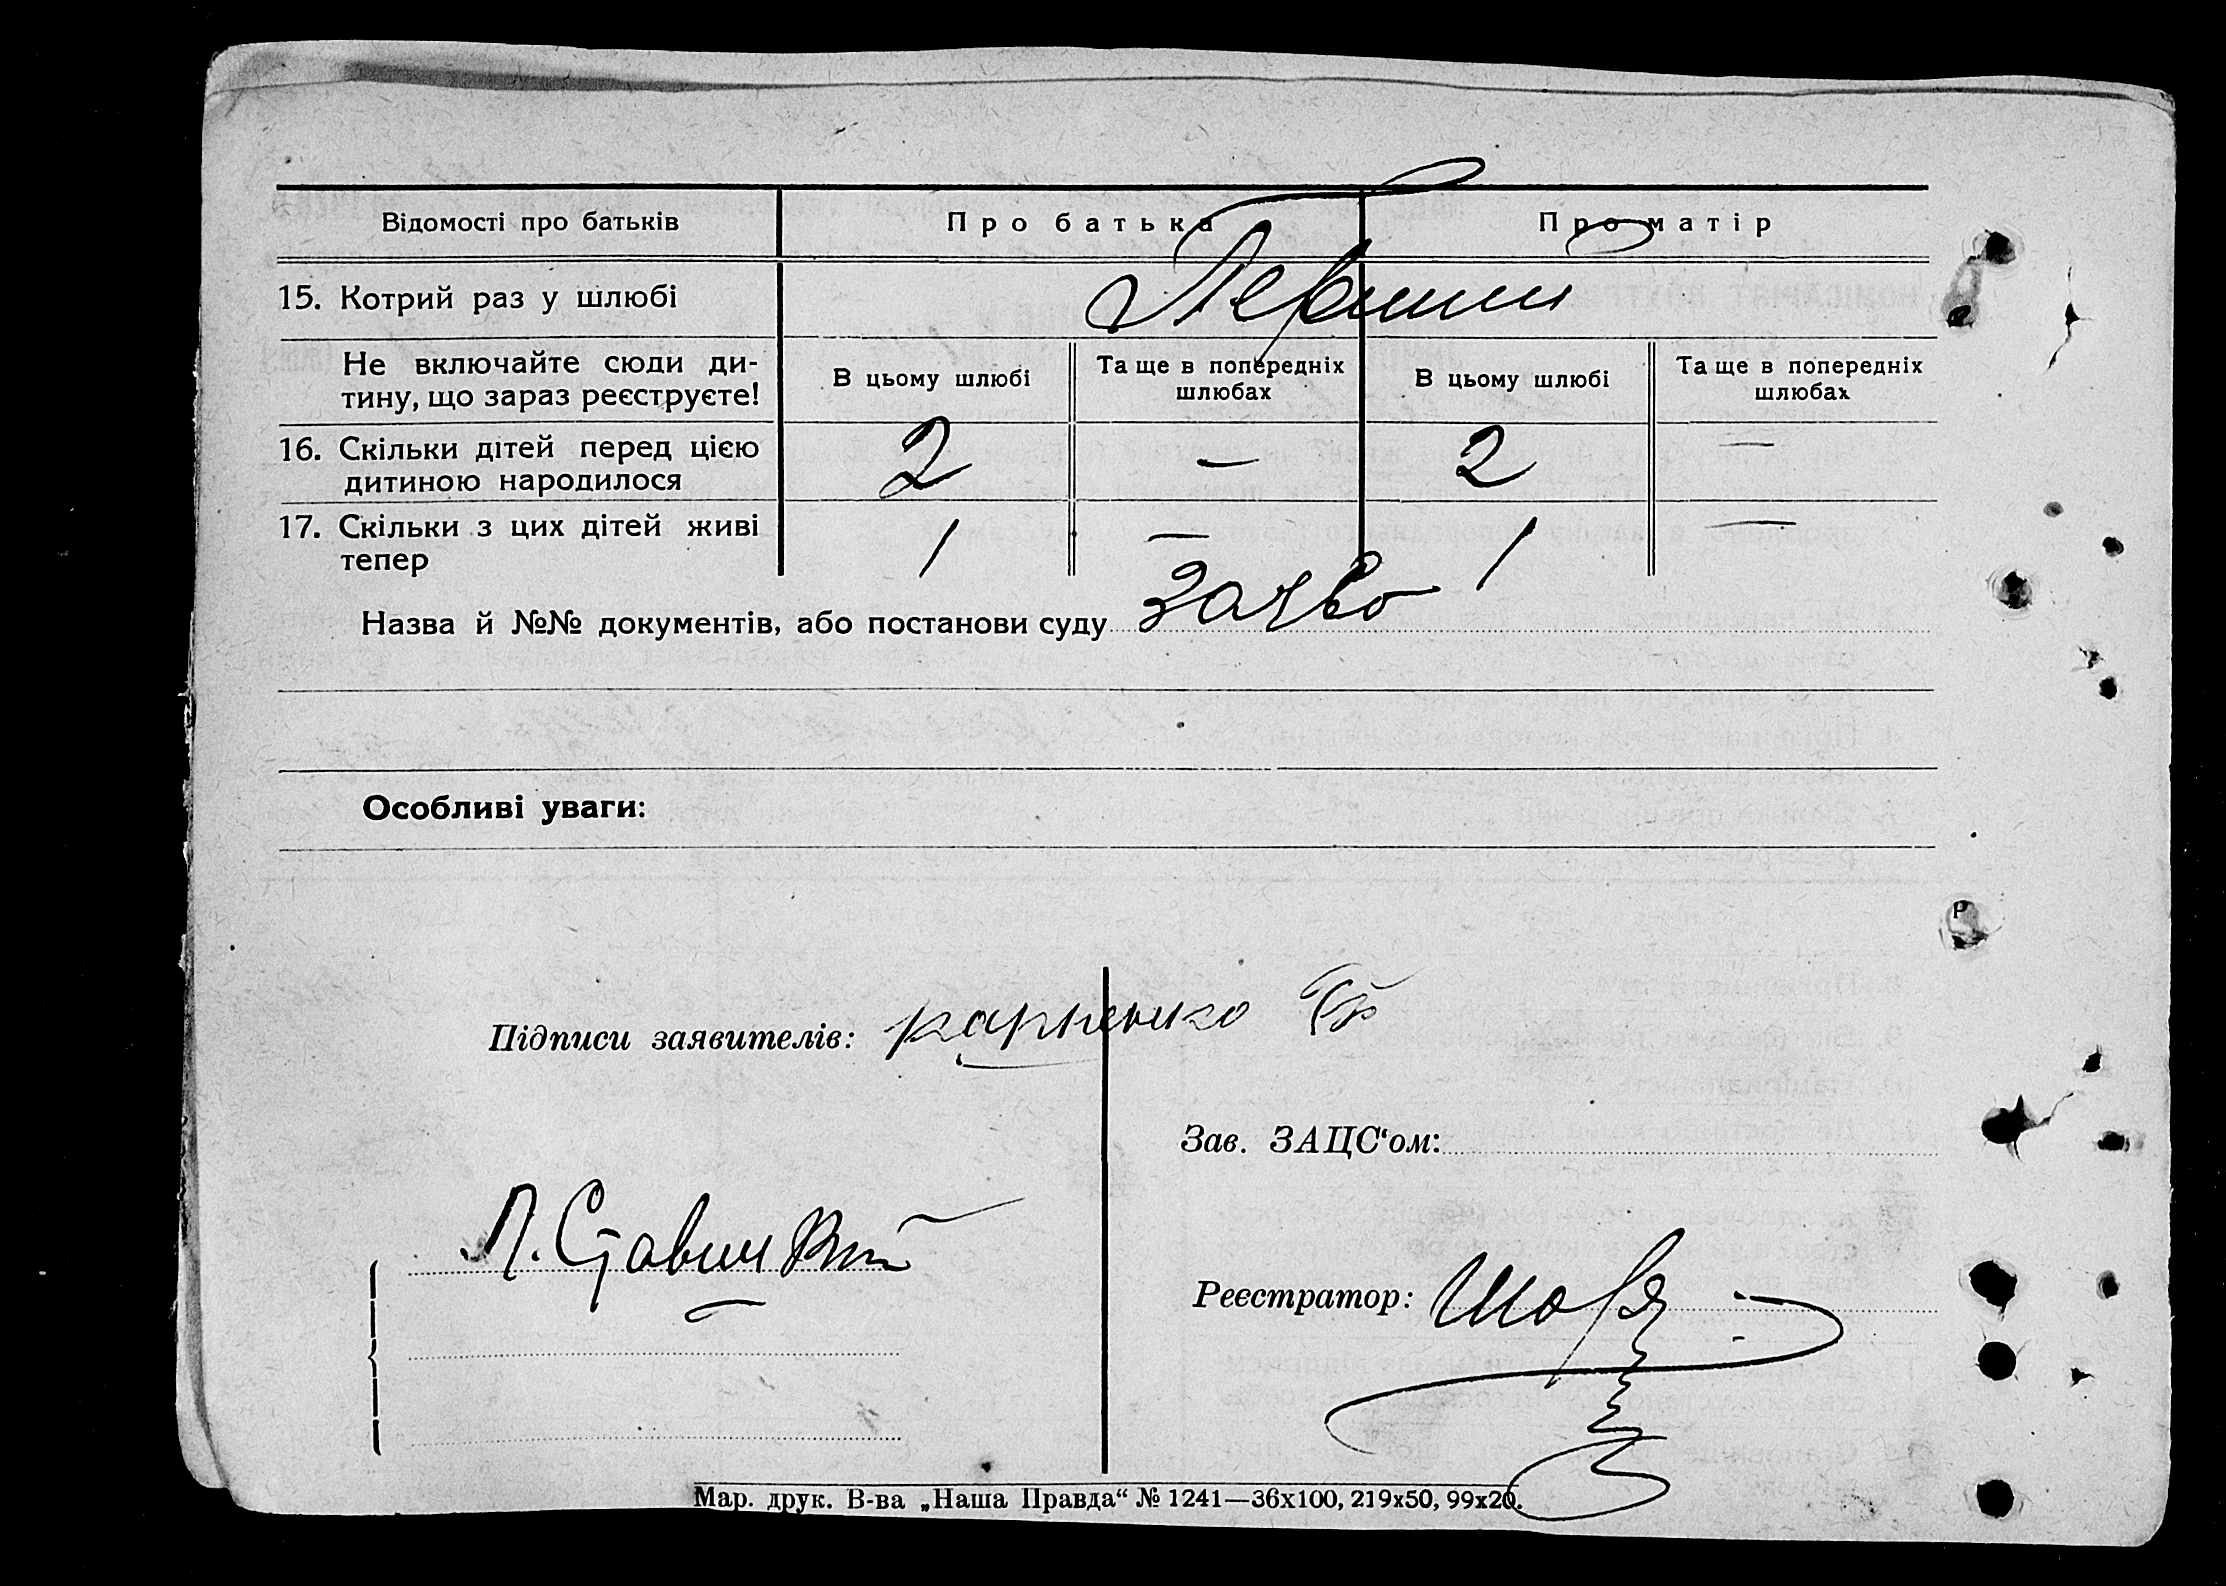 Відомості про батьків Про батька Про матір
15. Котрий раз у шлюбі Первший
Не включайте сюди ди-
тину, що зараз реєструєте!
В цьому шлюбі
Та ще в попередніх
шлюбах
В цьому шлюбі
Та ще в попередніх
шлюбах
16. Скільки дітей перед цією
дитиною народилося
2 — 2 —
17. Скільки з цих дітей живі
тепер
1 — 1 —
Назва й №№ документів, або постанови суду
Особливі уваги:
Підписи заявителів: карпенко
Зав. ЗАЦС‘ом:
Реєстратор:
Мар. друк. В-ва „Наша Правда“ № 1241—36х100, 219х50, 99х20.